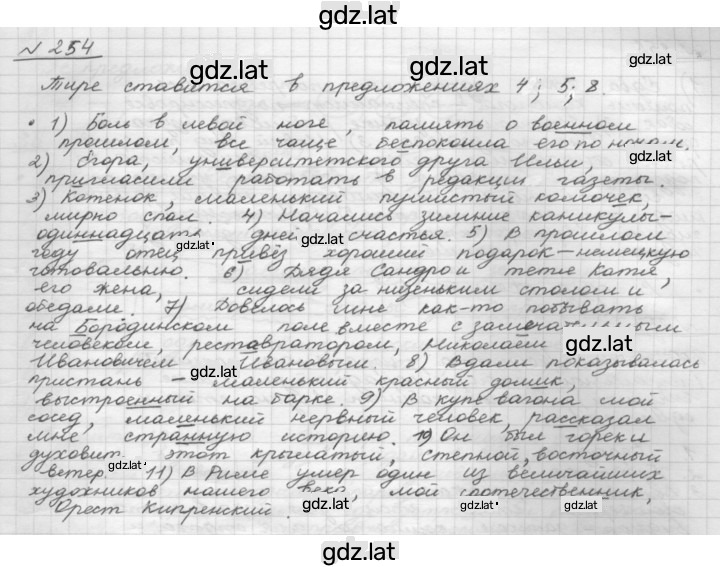 gdz.lat
№ 254
gdz.lat
gdz.lat
Тире ставятся в предложениях 4; 5; 8.
• 1) Боль в левой ноге, память о военном
прошлом, все чаще беспокоила его по
gdz.lat
2) Егора, университетского друга Ильи,
пригласили работать в редакции газеты.
3) Котенок, маленький пушистый комочек,
мирно спал. 4) Начались зимние каникулы-
одиннадцать дней счастья. 5) В прошлом
gdz.lat
gdz.lat
году отец привёз хороший подарок — немецкую
готовальню. 6) Дядя Сандро и тетя Катя,
его жена, сидели за низеньким столом и
gdz.lat
обедали. 7) Довелось мне как-то побывать
на Бородинском поле вместе с
человеком, реставратором, Николаем
gdz.lat
Ивановичем Ивановым. 8) Вдали показывалась
пристань — маленький красный домик,
gdz.lat
выстроенный на барке. 9) В купе вагона мой
сосед, маленький нервный человек, рассказал
мне странную историю. 10) Он был горек и
духовит этот крылатый, степной, восточный
ветер. 11) В Риме умер один из величайших
gdz.lat
художников нашего века, мой
Орест Кипренский.
gdz.lat
gdz.lat
gdz.lat
gdz.lat